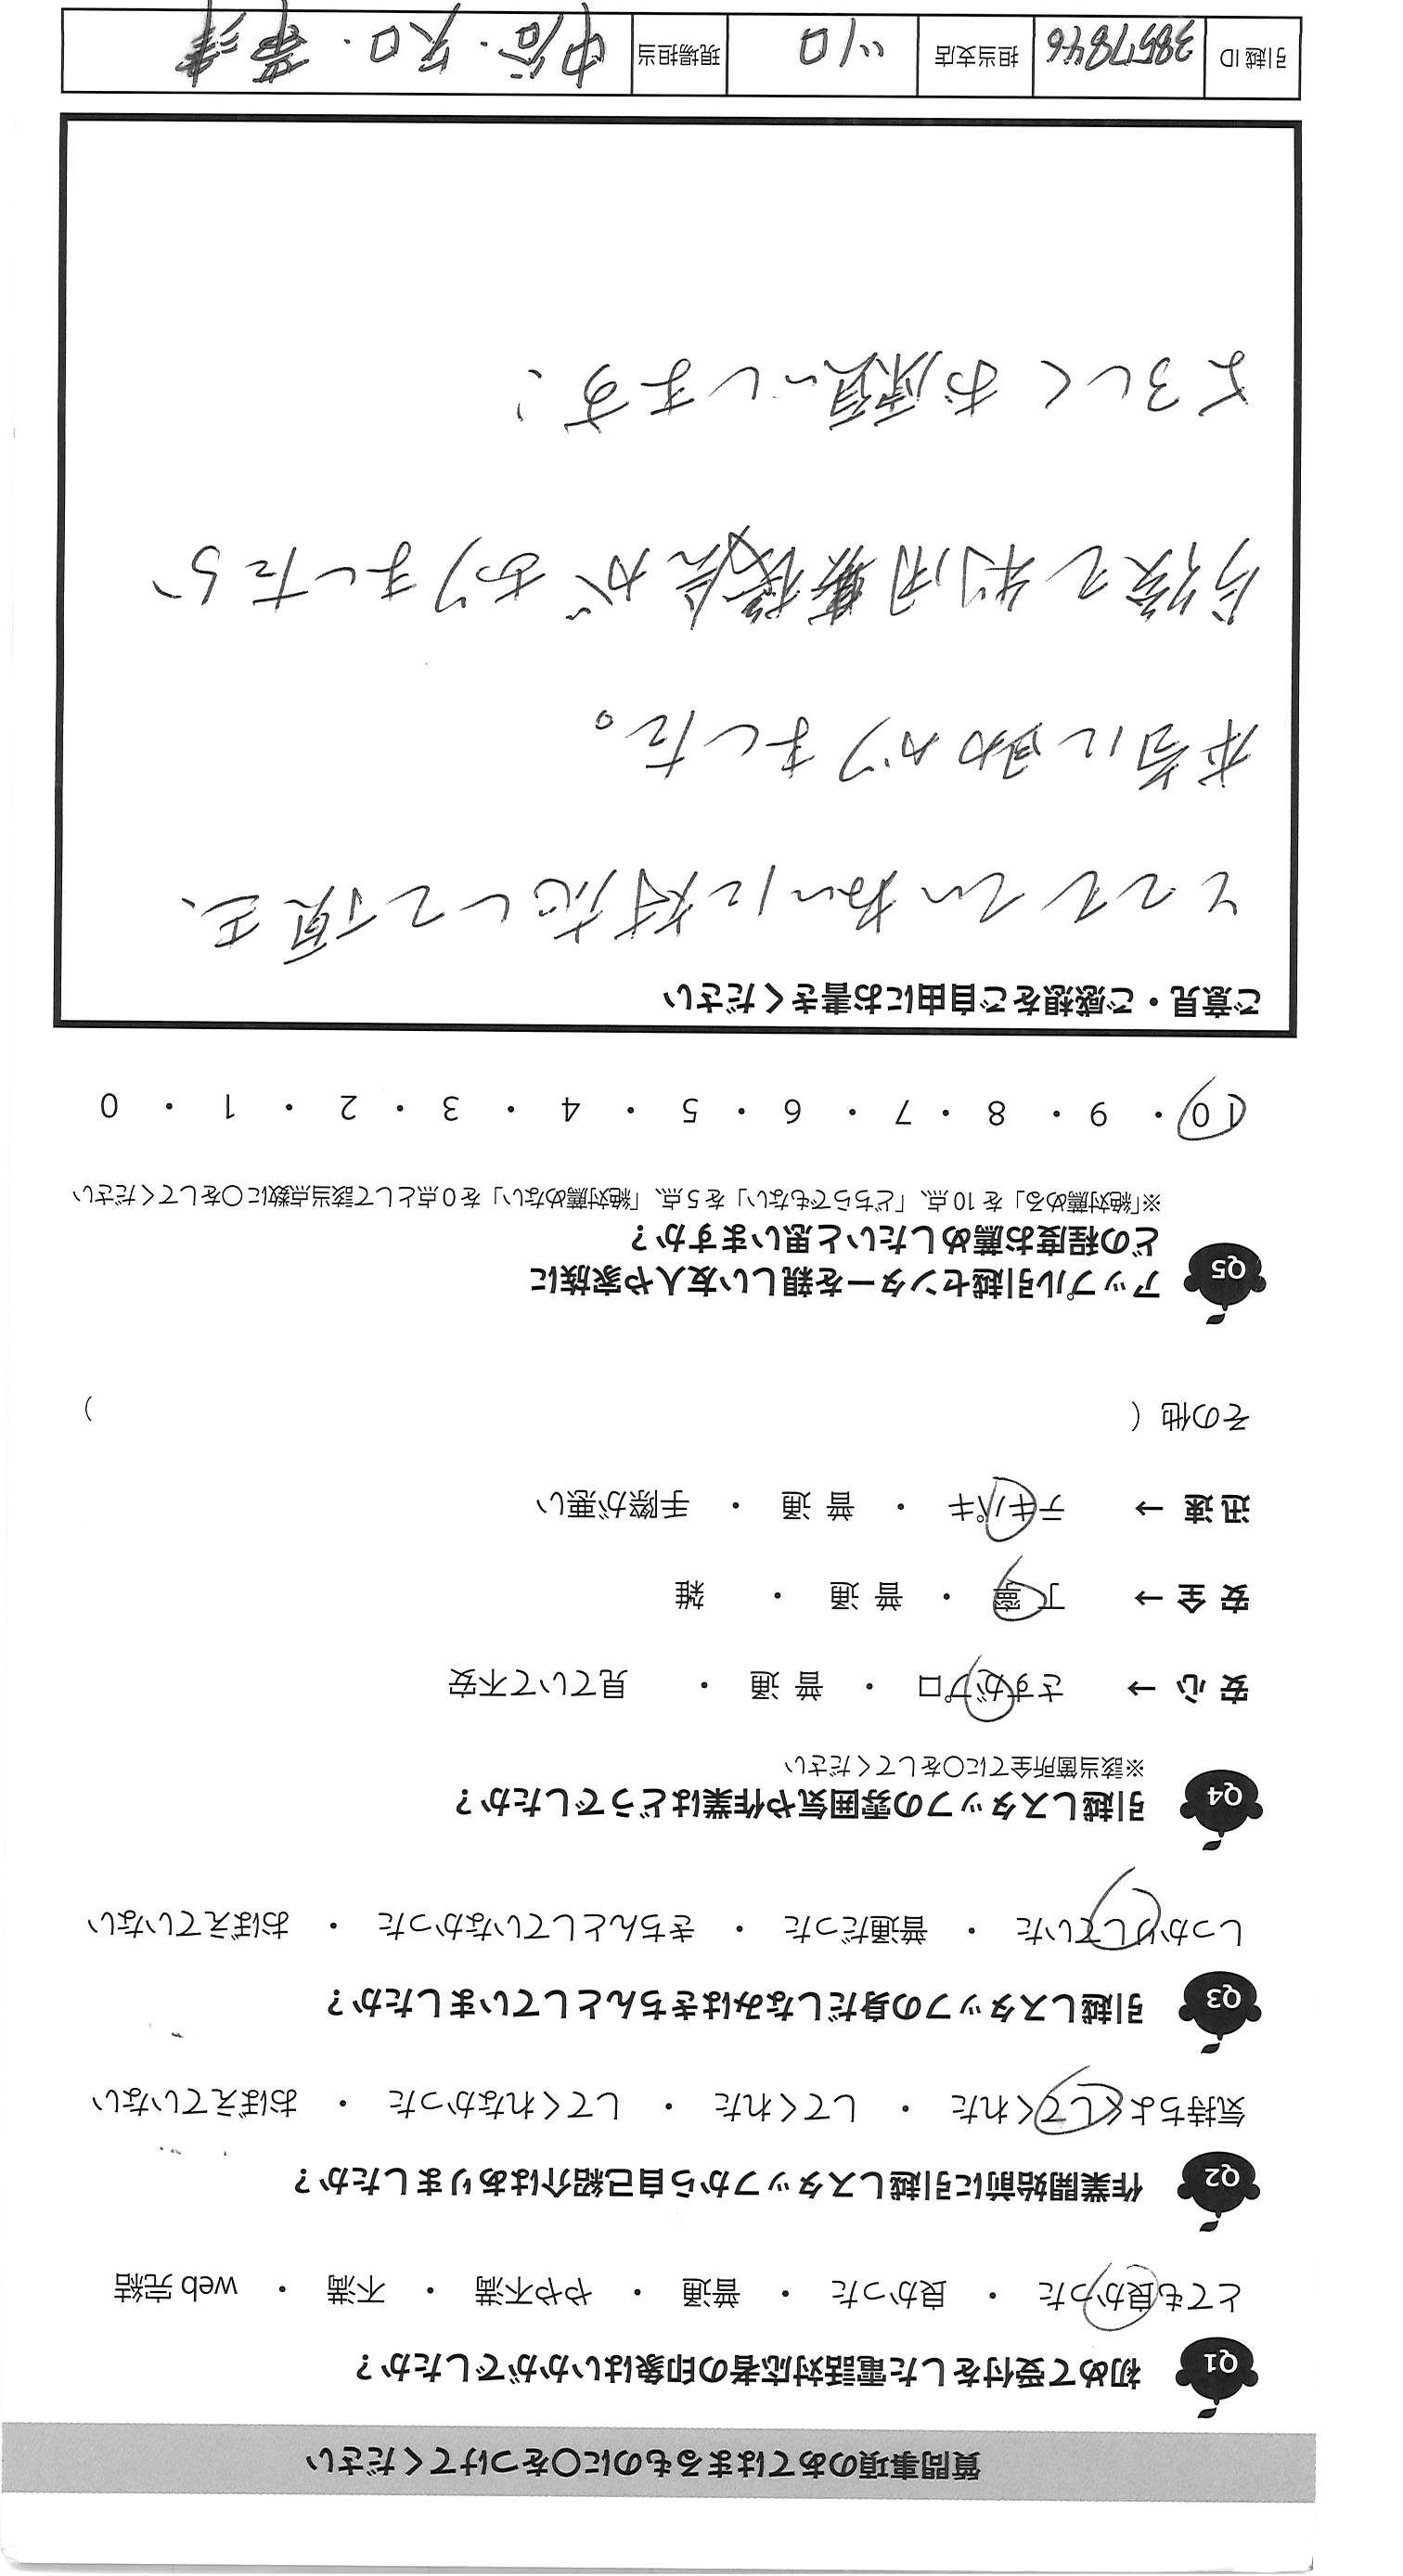 質問事項のあてはまるものに○をつけてください
Q1 初めて受付をした電話対応者の印象はいかがでしたか？
とても良かった ・ 良かった ・ 普通 ・ やや不満 ・ 不満 ・ web 完結
Q2 作業開始前に引越しスタッフから自己紹介はありましたか？
気持ちよくしてくれた ・ してくれた ・ してくれなかった ・ おぼえていない
Q3 引越しスタッフの身だしなみはきちんとしていましたか？
しっかりしていた ・ 普通だった ・ きちんとしていなかった ・ おぼえていない
Q4 引越しスタッフの雰囲気や作業はどうでしたか？
※該当箇所全てに○をしてください
安 心 → さすがプロ ・ 普 通 ・ 見ていて不安
安 全 → 丁 寧 ・ 普 通 ・ 雑
迅 速 → テキパキ ・ 普 通 ・ 手際が悪い
その他 （ ）
Q5 アップル引越センターを親しい友人や家族に
どの程度お薦めしたいと思いますか？
※「絶対薦める」を 10 点、「どちらでもない」を 5 点、「絶対薦めない」を 0 点として該当点数に○をしてください
10 ・ 9 ・ 8 ・ 7 ・ 6 ・ 5 ・ 4 ・ 3 ・ 2 ・ 1 ・ 0
ご意見・ご感想をご自由にお書きください
とてもていねいに対応して頂き、
本当に助かりました。
今後も利用機会がありましたら
よろしくお願いします！
引越 ID 38517846 担当支店 川口 現場担当 中谷・矢口・